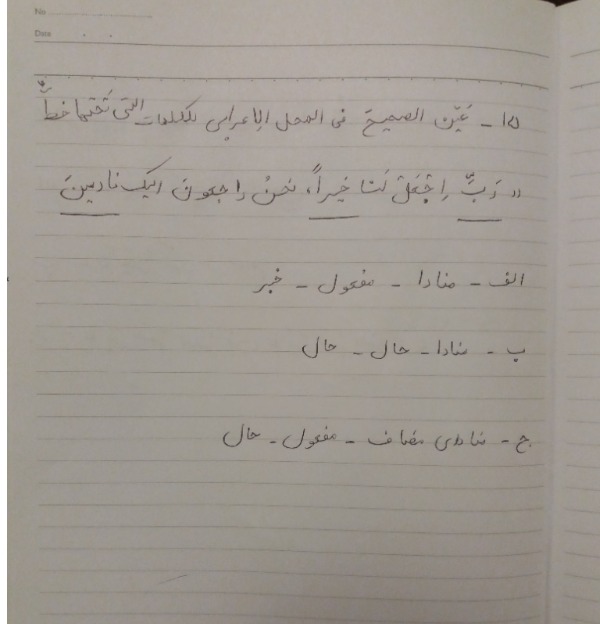 No
Date
۱۵ - عَیِّن الصحیحَ فی المحل الإعرابی للکلمات التی تَحْتَها خطٌّ
« رَبِّ اِجْعَلْ لَنا خیراً، نحنُ راجعونَ الیک نادمینَ
الف - منادا - مفعول - خبر
ب - منادا - حال - حال
ج - منادی مضاف - مفعول - حال